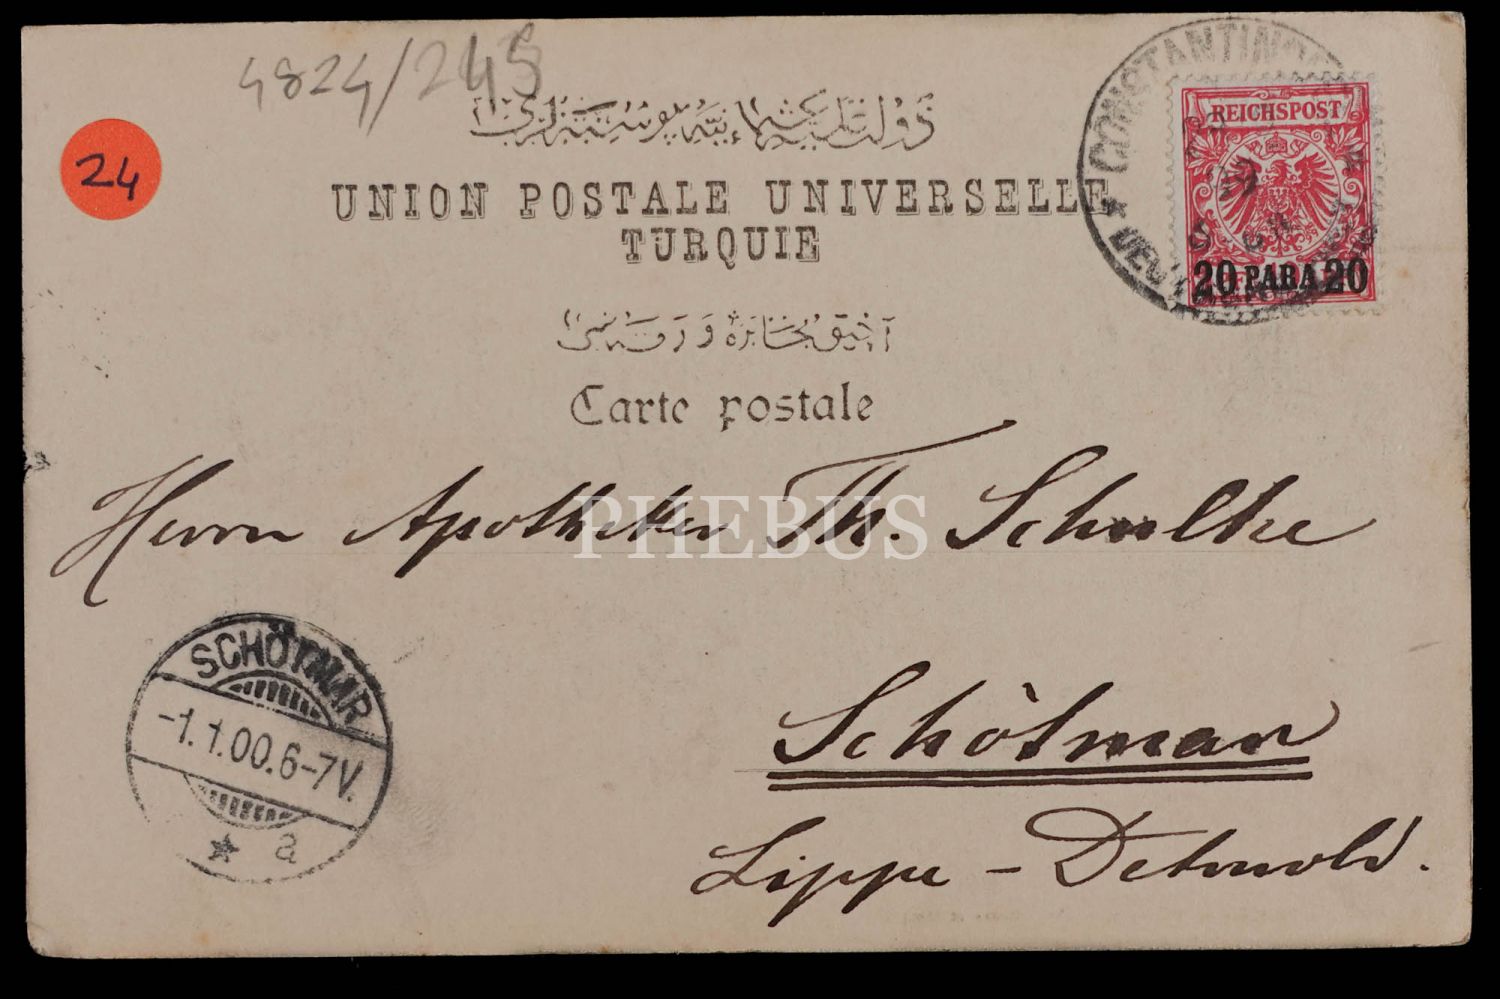 4824/245
24
CONSTANTINO
REICHSPOST
20 PARA 20
دولت عليه عثمانيه پوسته لرى
UNION POSTALE UNIVERSELLE
TURQUIE
آچيق مخابره ورقه سى
Carte postale
Herrn Apotheker Th. Schulke
PHEBUS
SCHÖTMAR
-1.1.00.6-7V.
★ a
Schötmar
Lippe - Detmold.